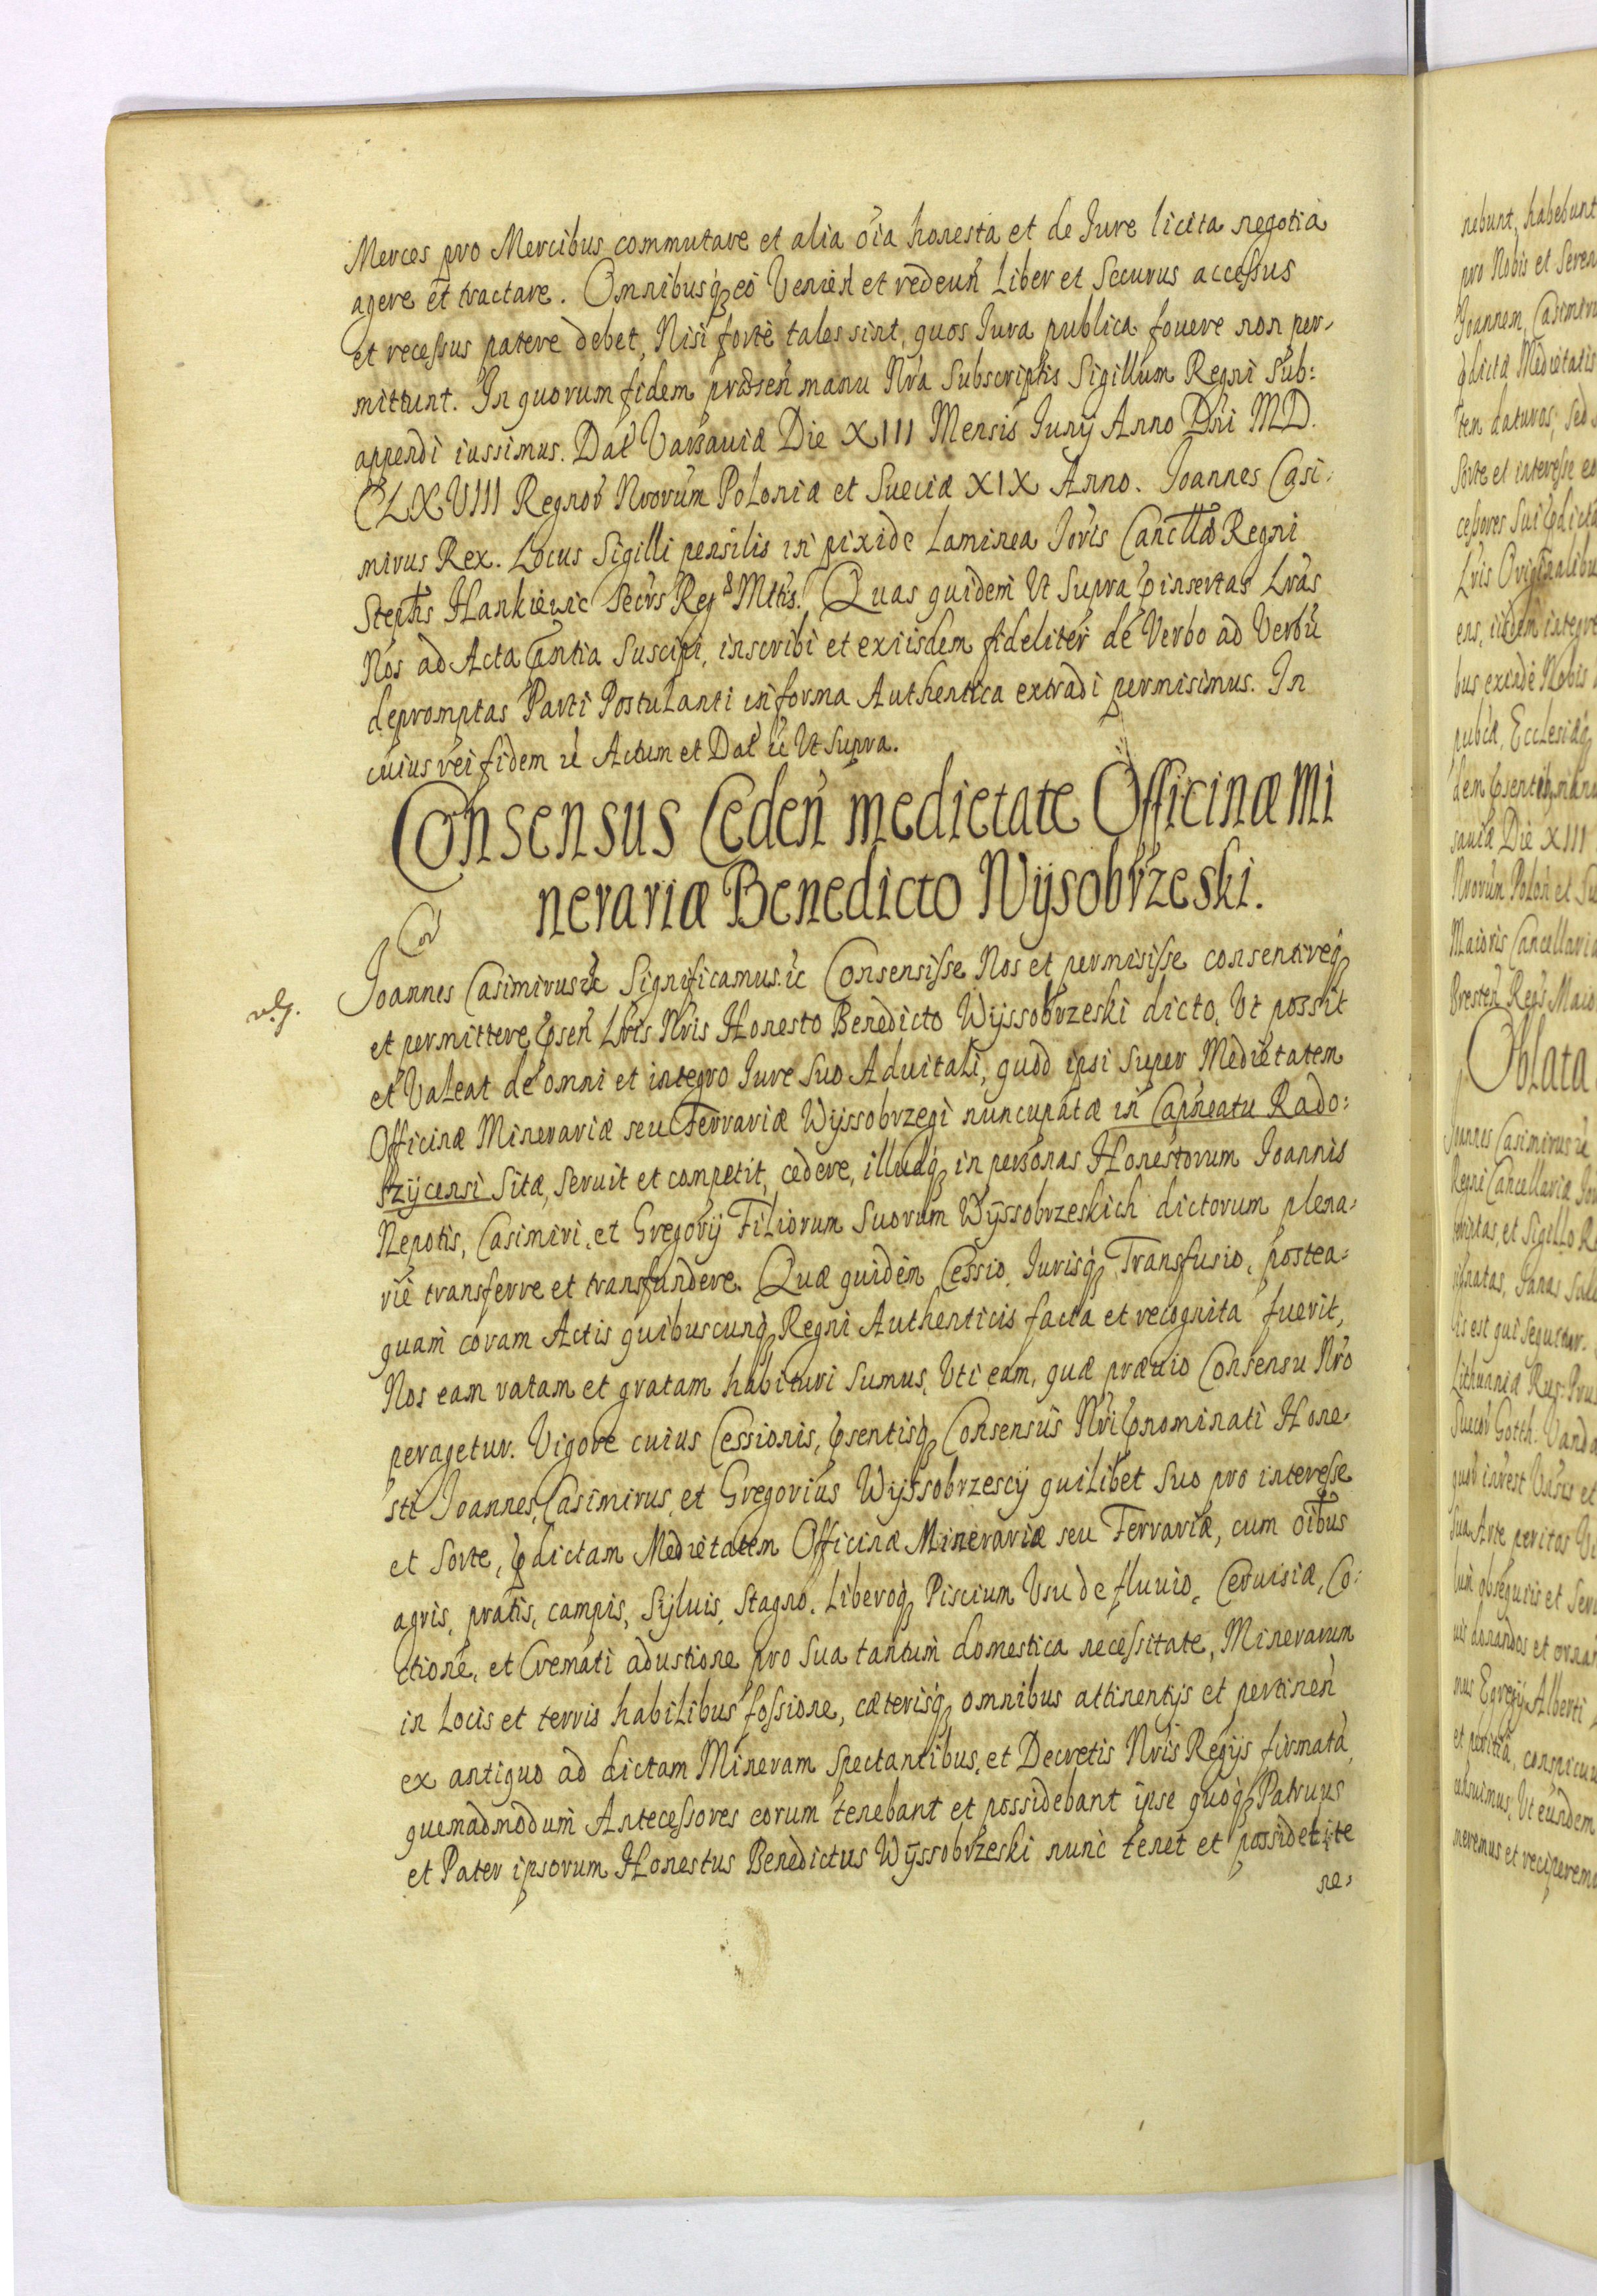 Merces pro Mercibus commutare et alia oĩa honesta et de Jure licita negotia
agere et tractare. Omnibusq; eo Venień et redeuń Liber et Securus accessus
et recessus patere debet, Nisi forte tales sint, quos Jura publica fouere non per,
mittunt. In quorum fidem præseń manu Nra Subscriptis Sigillum Regni Sub:
appendi iussimus. Dat Varsauiæ Die XIII Mensis Junij Anno Dni MD.
CLXVIII Regnor Nrorum Poloniæ et Sueciæ XIX Anno. Joannes Casi:
mirus Rex. Locus Sigilli pensilis in pixide Laminea Joris Cancllæ Regni
Stephs Hankiewic Secrs Reg Mttis. Quas quidem Ut Supra pinsertas Lras
Nos ad Acta pntia Suscipi, inscribi et exiisdem fideliter de Verbo ad Verbũ
depromptas Parti Postulanti in forma Authentica extradi permisimus. In
cuius rei fidem &c Actum et Dat &c Ut Supra.
Consensus Cedeń medietate Officinæ Mi
nerariæ Benedicto Wysobrzeski.
Cor
Joannes Casimirus &c Significamus &c Consensisse Nos et permisisse consentireq;
et permittere pseń Lris Nris Honesto Benedicto Wyssobrzeski dicto, Ut possit
et Valeat de omni et integro Jure Suo Aduitali, quod ipsi Super Medietatem
Officinæ Minerariæ seu Ferrariæ Wyssobrzegi nuncupatæ in Capneatu Rado:
szycensi Sitæ, Seruit et competit, cedere, illudq; in personas Honestorum Joannis
Nepotis, Casimiri, et Gregorij Filiorum Suorum Wyssobrzeskich dictorum plena,
rie transferre et transfundere. Quæ quidem Cessio, Jurisq; Transfusio, postea,
quam coram Actis quibuscunq; Regni Authenticis facta et recognita fuerit,
Nos eam ratam et gratam habituri Sumus, Uti eam, quæ præuio Consensu Nro
peragetur. Vigore cuius Cessionis, psentisq; Consensus Nri pnominati Hone,
sti Joannes, Casimirus, et Gregorius Wyssobrzescij quilibet Suo pro interesse
et Sorte, pdictam Medietatem Officinæ Minerariæ seu Ferrariæ, cum oĩbus
agris, pratis, campis, Syluis, Stagno, Liberoq; Piscium Usu de fluuio, Ceruisiæ, Co:
ctione, et Cremati adustione pro Sua tantum domestica necessitate, Minerarum
in Locis et terris habilibus fossione, cæterisq; omnibus attinentijs et pertineń
ex antiquo ad dictam Mineram Spectantibus, et Decretis Nris Regijs firmata,
quemadmodum Antecessores eorum tenebant et possidebant ipse quoq; Patruus
et Pater ipsorum Honestus Benedictus Wyssobrzeski nunc tenet et possidet ite
ne,
nebunt, habebunt
pro Nobis et Seren
Joannem, Casimiru
pdictæ Medietatis
ten daturos, Sed
Sorte et interesse eo
cessores Sui pdicta
Lris Originalibu
ens, iidem integre
bus exinde Nobis
publicæ, Ecclesiæq;
dem psentib, manu
sauiæ Die XIII
Nrorum Poloń et Su
Maioris Cancellaria
Bresteń Regs Maio
Oblata
Joannes Casimirus &c
Regni Cancellariæ Jor
scriptas, et Sigillo Re
signatas, Sanas Salu
lis est qui Sequitur.
Lithuaniæ Rus: Prus
Suecor Gotth. Vanda
quor interest Uniuis et
Sua Arte peritos Vi
lum obsequiis et Seru
uis donandos et ornan
mus Egregij Alberti
et peritia, conspicuu
censuimus, Ut eundem
meremus et reciperemu